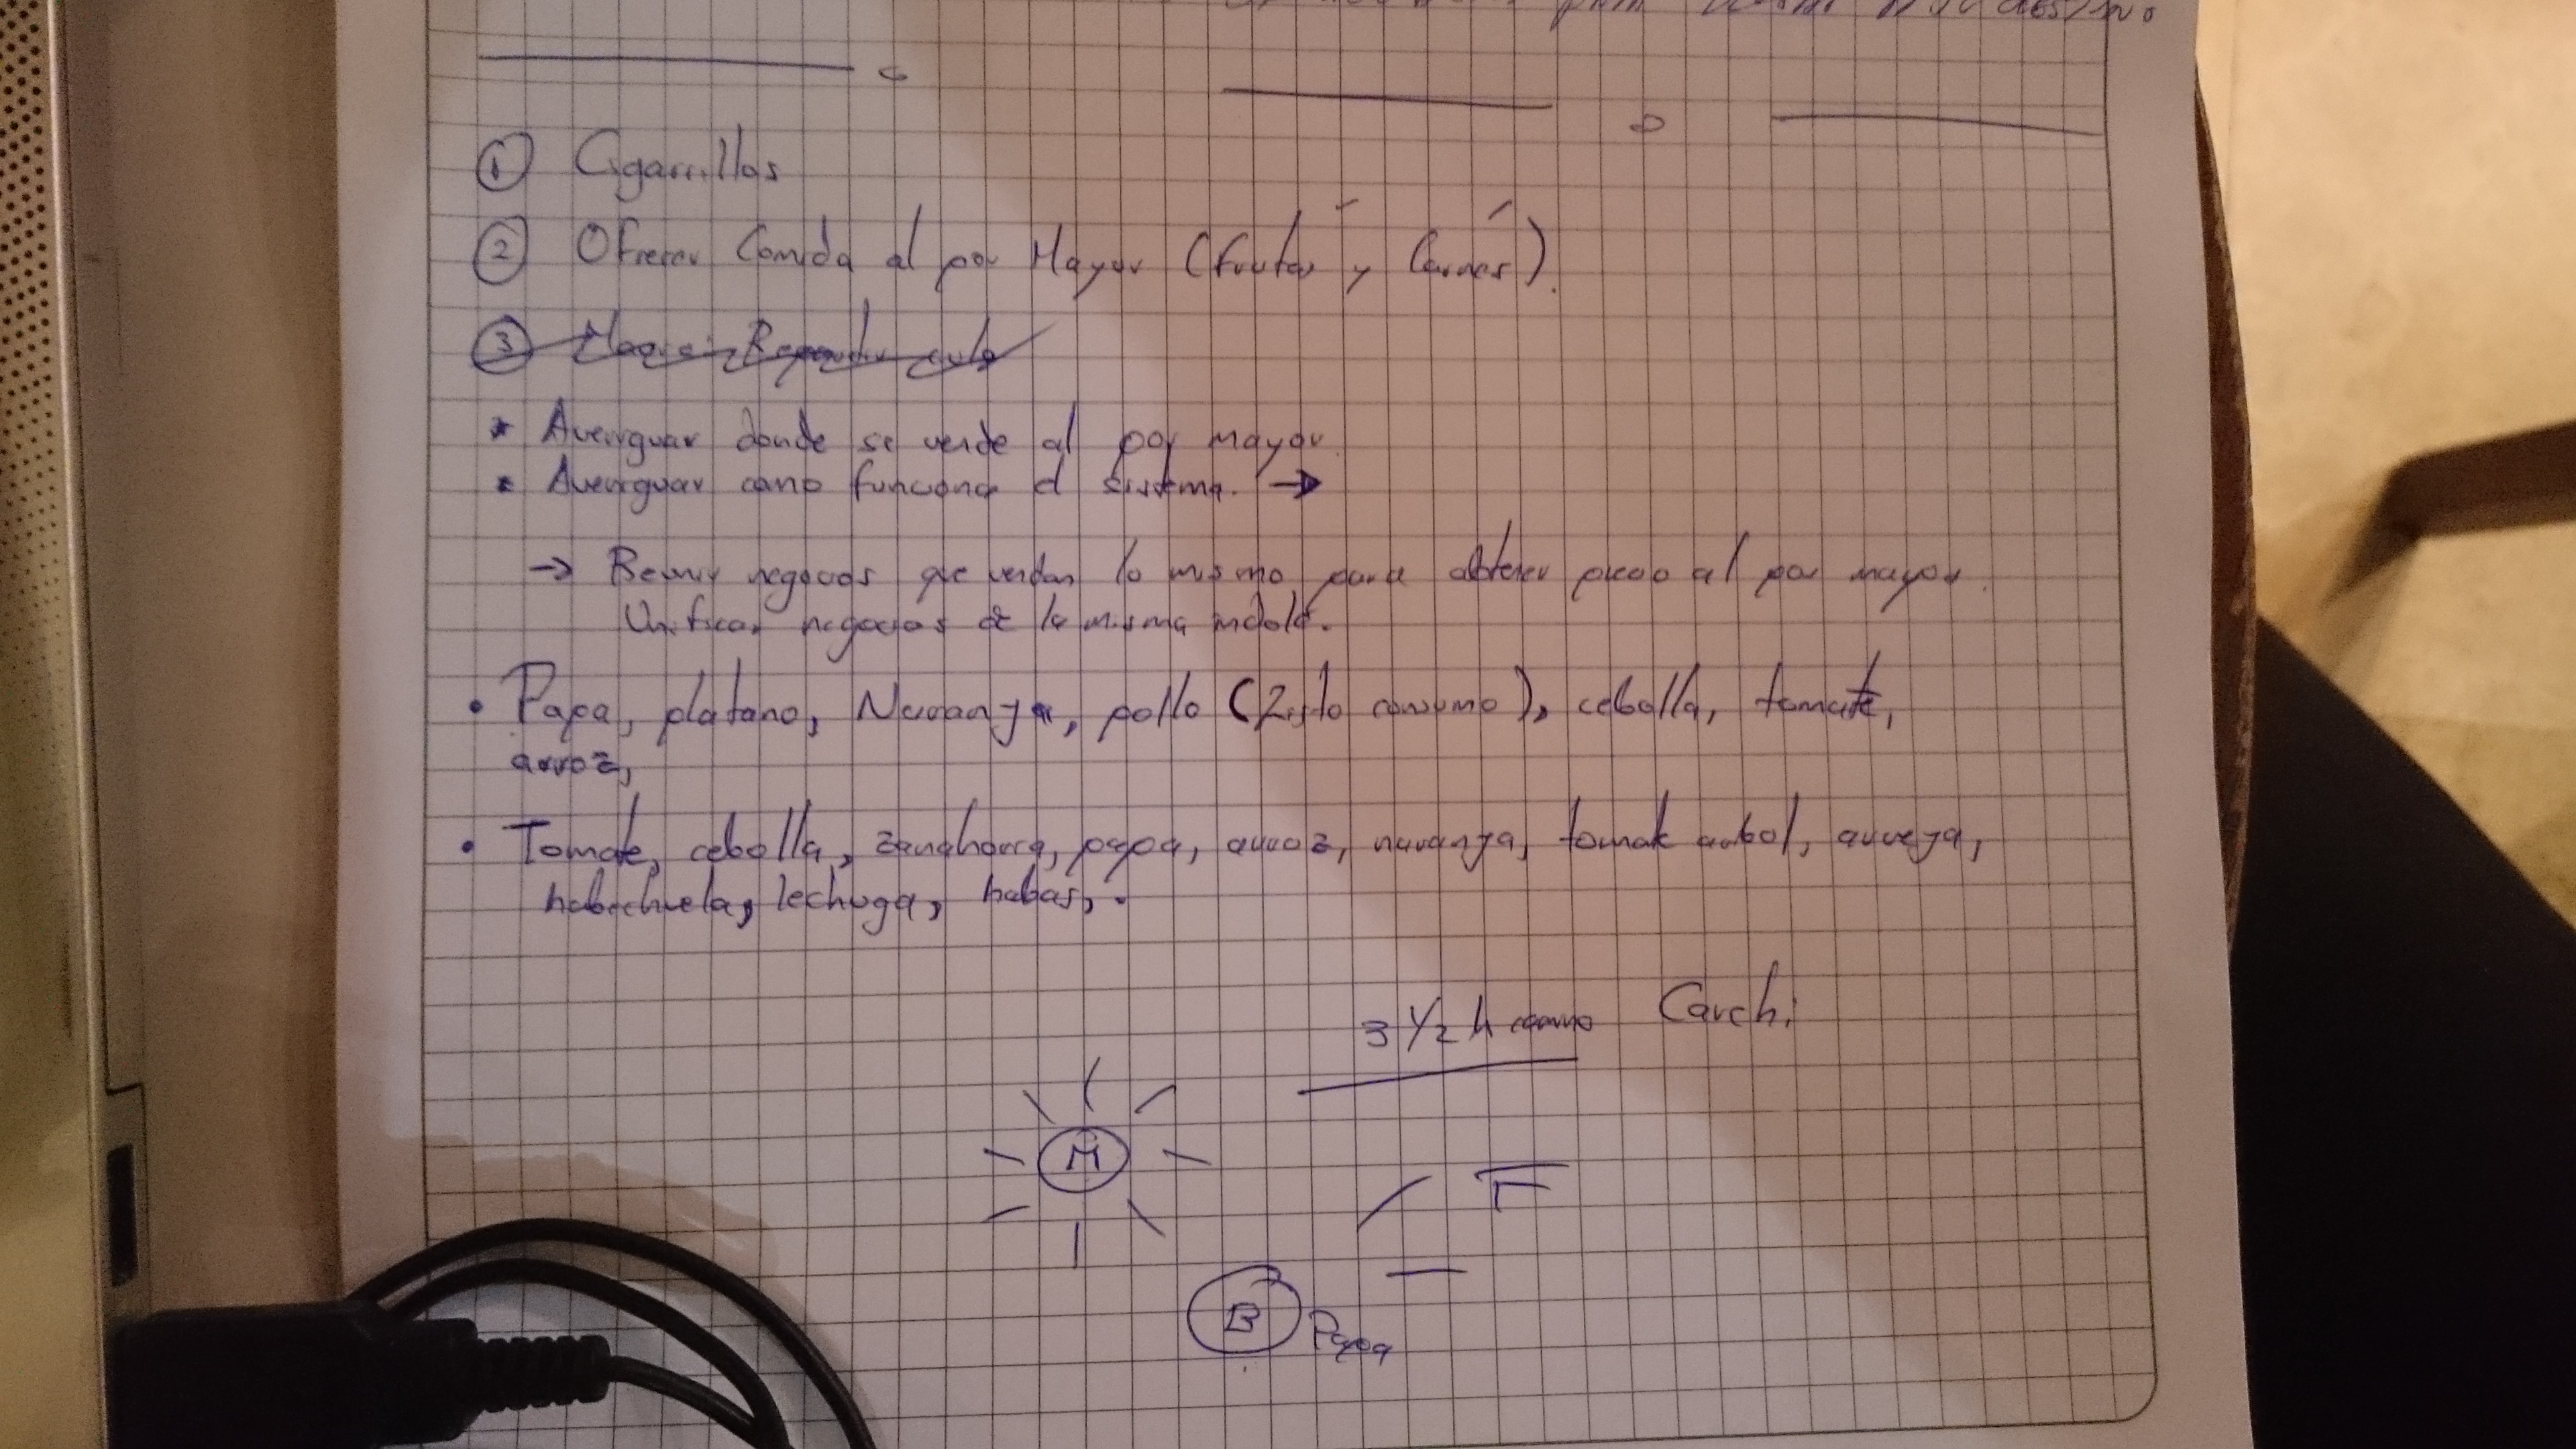 para
① Cigarrillos
② Ofrecer Comida al por Mayor (frutas y Carnes).
③
* Averiguar donde se vende al por mayor.
* Averiguar como funciona el sistema. →
→ Reunir negocios que vendan lo mismo para obtener precio al por mayor.
Unificar negocios de la misma indole.
• Papa, platano, Naranja, pollo (listo consumo), cebolla, tomate,
arroz,
• Tomate, cebolla, zanahoria, papa, arroz, naranja, tomate arbol, arveja,
habichuela, lechuga, habas,.
3 1/2 h camino Carchi
M
F
B Papa